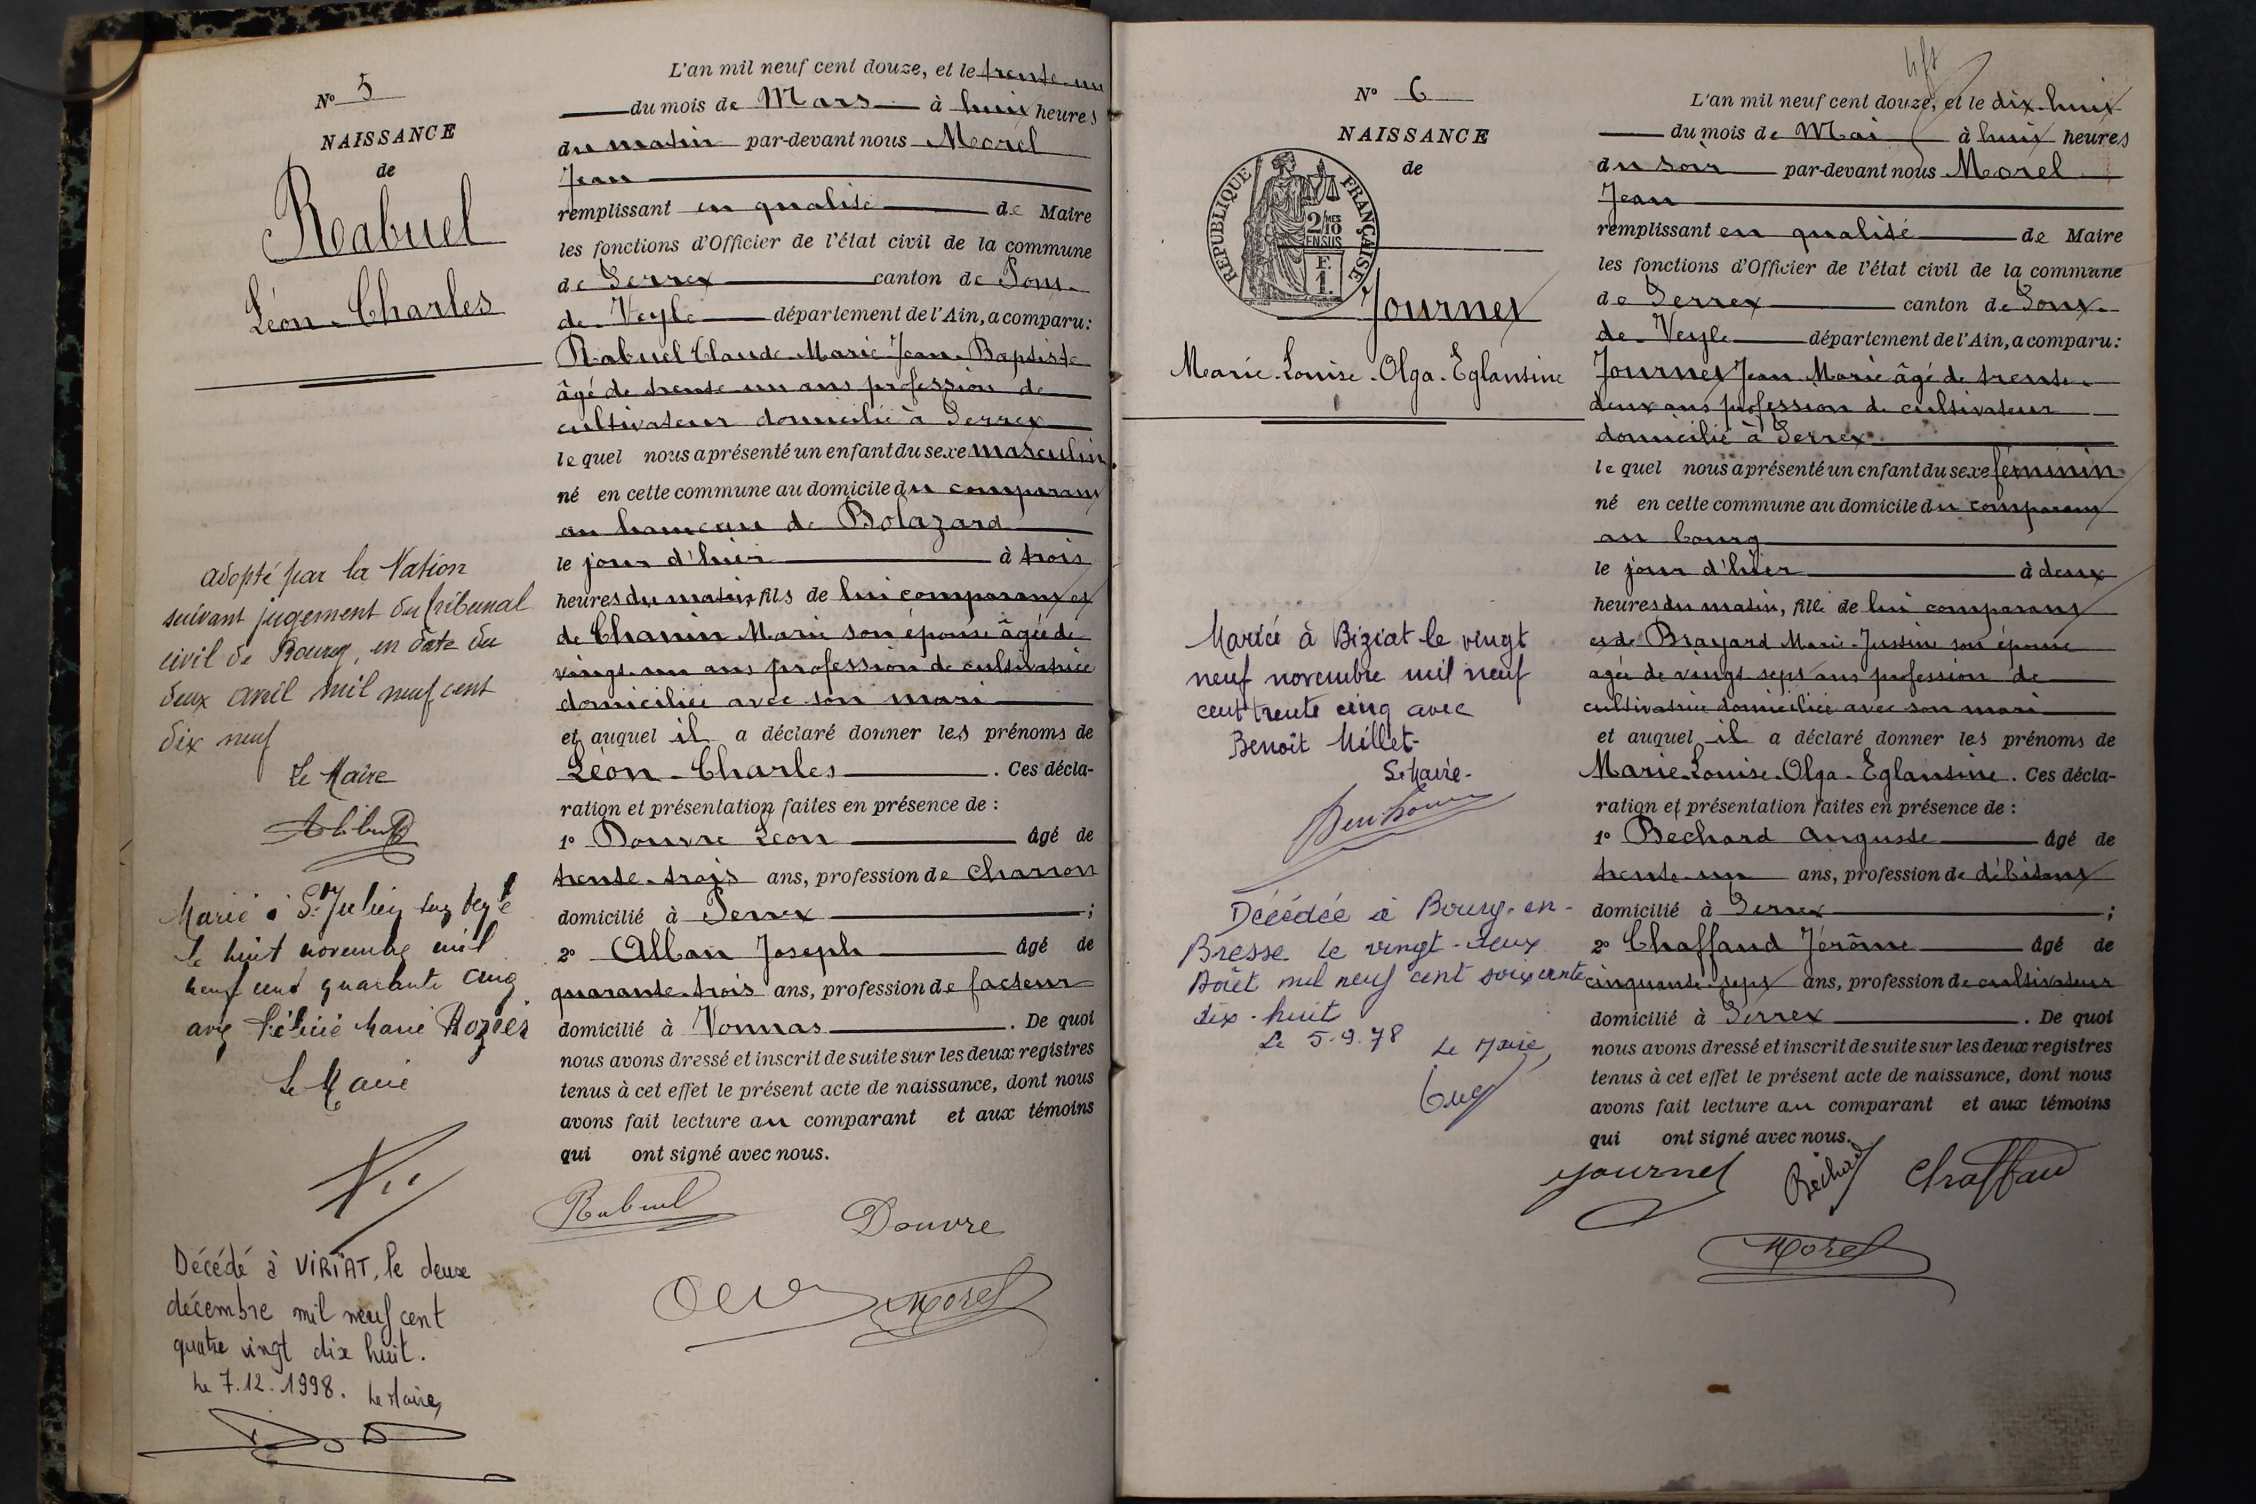 Nº 5
NAISSANCE
de
Rabuel
Léon-Charles
adopté par la Nation
suivant jugement du tribunal
civil de Bourg, en date du
deux avril mil neuf cent
dix neuf
Le Maire
Marié à St Julien sur Veyle
le huit novembre mil
neuf cent quarante cinq
avec Félicie Marie Rozier
Le Maire
Décédé à VIRIAT, le deux
décembre mil neuf cent
quatre vingt dix huit.
Le 7.12.1998. Le Maire,
L'an mil neuf cent douze, et le trente-un
du mois de Mars à huit heures
du matin par-devant nous Morel
Jean
remplissant en qualité de Maire
les fonctions d'Officier de l'état civil de la commune
de Perrex canton de Pont-
de-Veyle département de l'Ain, a comparu:
Rabuel Claude-Marie-Jean-Baptiste
âgé de trente un ans profession de
cultivateur domicilié à Perrex
lequel nous a présenté un enfant du sexe masculin
né en cette commune au domicile du comparant
au hameau de Bolazard
le jour d'hier à trois
heures du matin, fils de lui comparant et
de Chanin Marie son épouse âgée de
vingt-un ans profession de cultivatrice
domiciliée avec son mari
et auquel il a déclaré donner les prénoms de
Léon-Charles. Ces décla-
ration et présentation faites en présence de :
1º Douvre Léon âgé de
trente-trois ans, profession de Charron
domicilié à Perrex ;
2º Alban Joseph âgé de
quarante-trois ans, profession de facteur
domicilié à Vonnas. De quoi
nous avons dressé et inscrit de suite sur les deux registres
tenus à cet effet le présent acte de naissance, dont nous
avons fait lecture au comparant et aux témoins
qui ont signé avec nous.
Rabuel Douvre
Morel
Nº 6
NAISSANCE
de
RÉPUBLIQUE FRANÇAISE
2/10MES
EN SUS
F.
1.
Journet
Marie-Louise-Olga-Eglantine
Mariée à Biziat le vingt
neuf novembre mil neuf
cent trente cinq avec
Benoît Millet-
Le Maire-
Décédée à Bourg-en-
Bresse le vingt-deux
Août mil neuf cent soixante
dix-huit
Le 5.9.78 Le Maire,
L'an mil neuf cent douze, et le dix-huit
du mois de Mai à huit heures
du soir par-devant nous Morel
Jean
remplissant en qualité de Maire
les fonctions d'Officier de l'état civil de la commune
de Perrex canton de Pont-
de-Veyle département de l'Ain, a comparu:
Journet Jean-Marie âgé de trente-
deux ans profession de cultivateur
domicilié à Perrex
lequel nous a présenté un enfant du sexe féminin
né en cette commune au domicile du comparant
au bourg
le jour d'hier à deux
heures du matin, fille de lui comparant
et de Brayard Marie-Justine son épouse
agée de vingt sept ans profession de
cultivatrice domiciliée avec son mari
et auquel il a déclaré donner les prénoms de
Marie-Louise-Olga-Eglantine. Ces décla-
ration et présentation faites en présence de :
1º Bechard Auguste âgé de
trente-un ans, profession de débitant
domicilié à Perrex ;
2º Chaffaud Jérôme âgé de
cinquante-sept ans, profession de cultivateur
domicilié à Perrex. De quoi
nous avons dressé et inscrit de suite sur les deux registres
tenus à cet effet le présent acte de naissance, dont nous
avons fait lecture au comparant et aux témoins
qui ont signé avec nous.
Journet Béchard Chaffaud
Morel